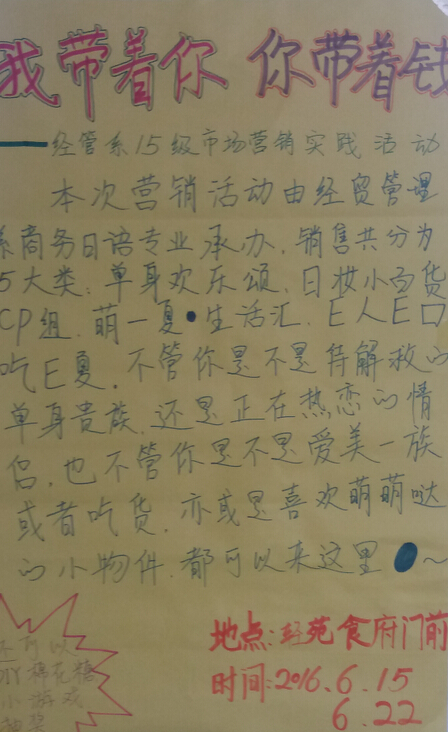 我带着你 你带着钱
——经管系15级市场营销实践活动
本次营销活动由经贸管理
系商务日语专业承办.销售共分为
5大类:单身欢乐颂.日妆小百货
CP组.萌一夏•生活汇.E人E口
吃E夏.不管你是不是待解救的
单身贵族.还是正在热恋的情
侣.也不管你是不是爱美一族
或者吃货.亦或是喜欢萌萌哒
的小物件.都可以来这里~
还可以
DIY棉花糖
小游戏
抽奖
地点:轻苑食府门前
时间:2016.6.15
6.22